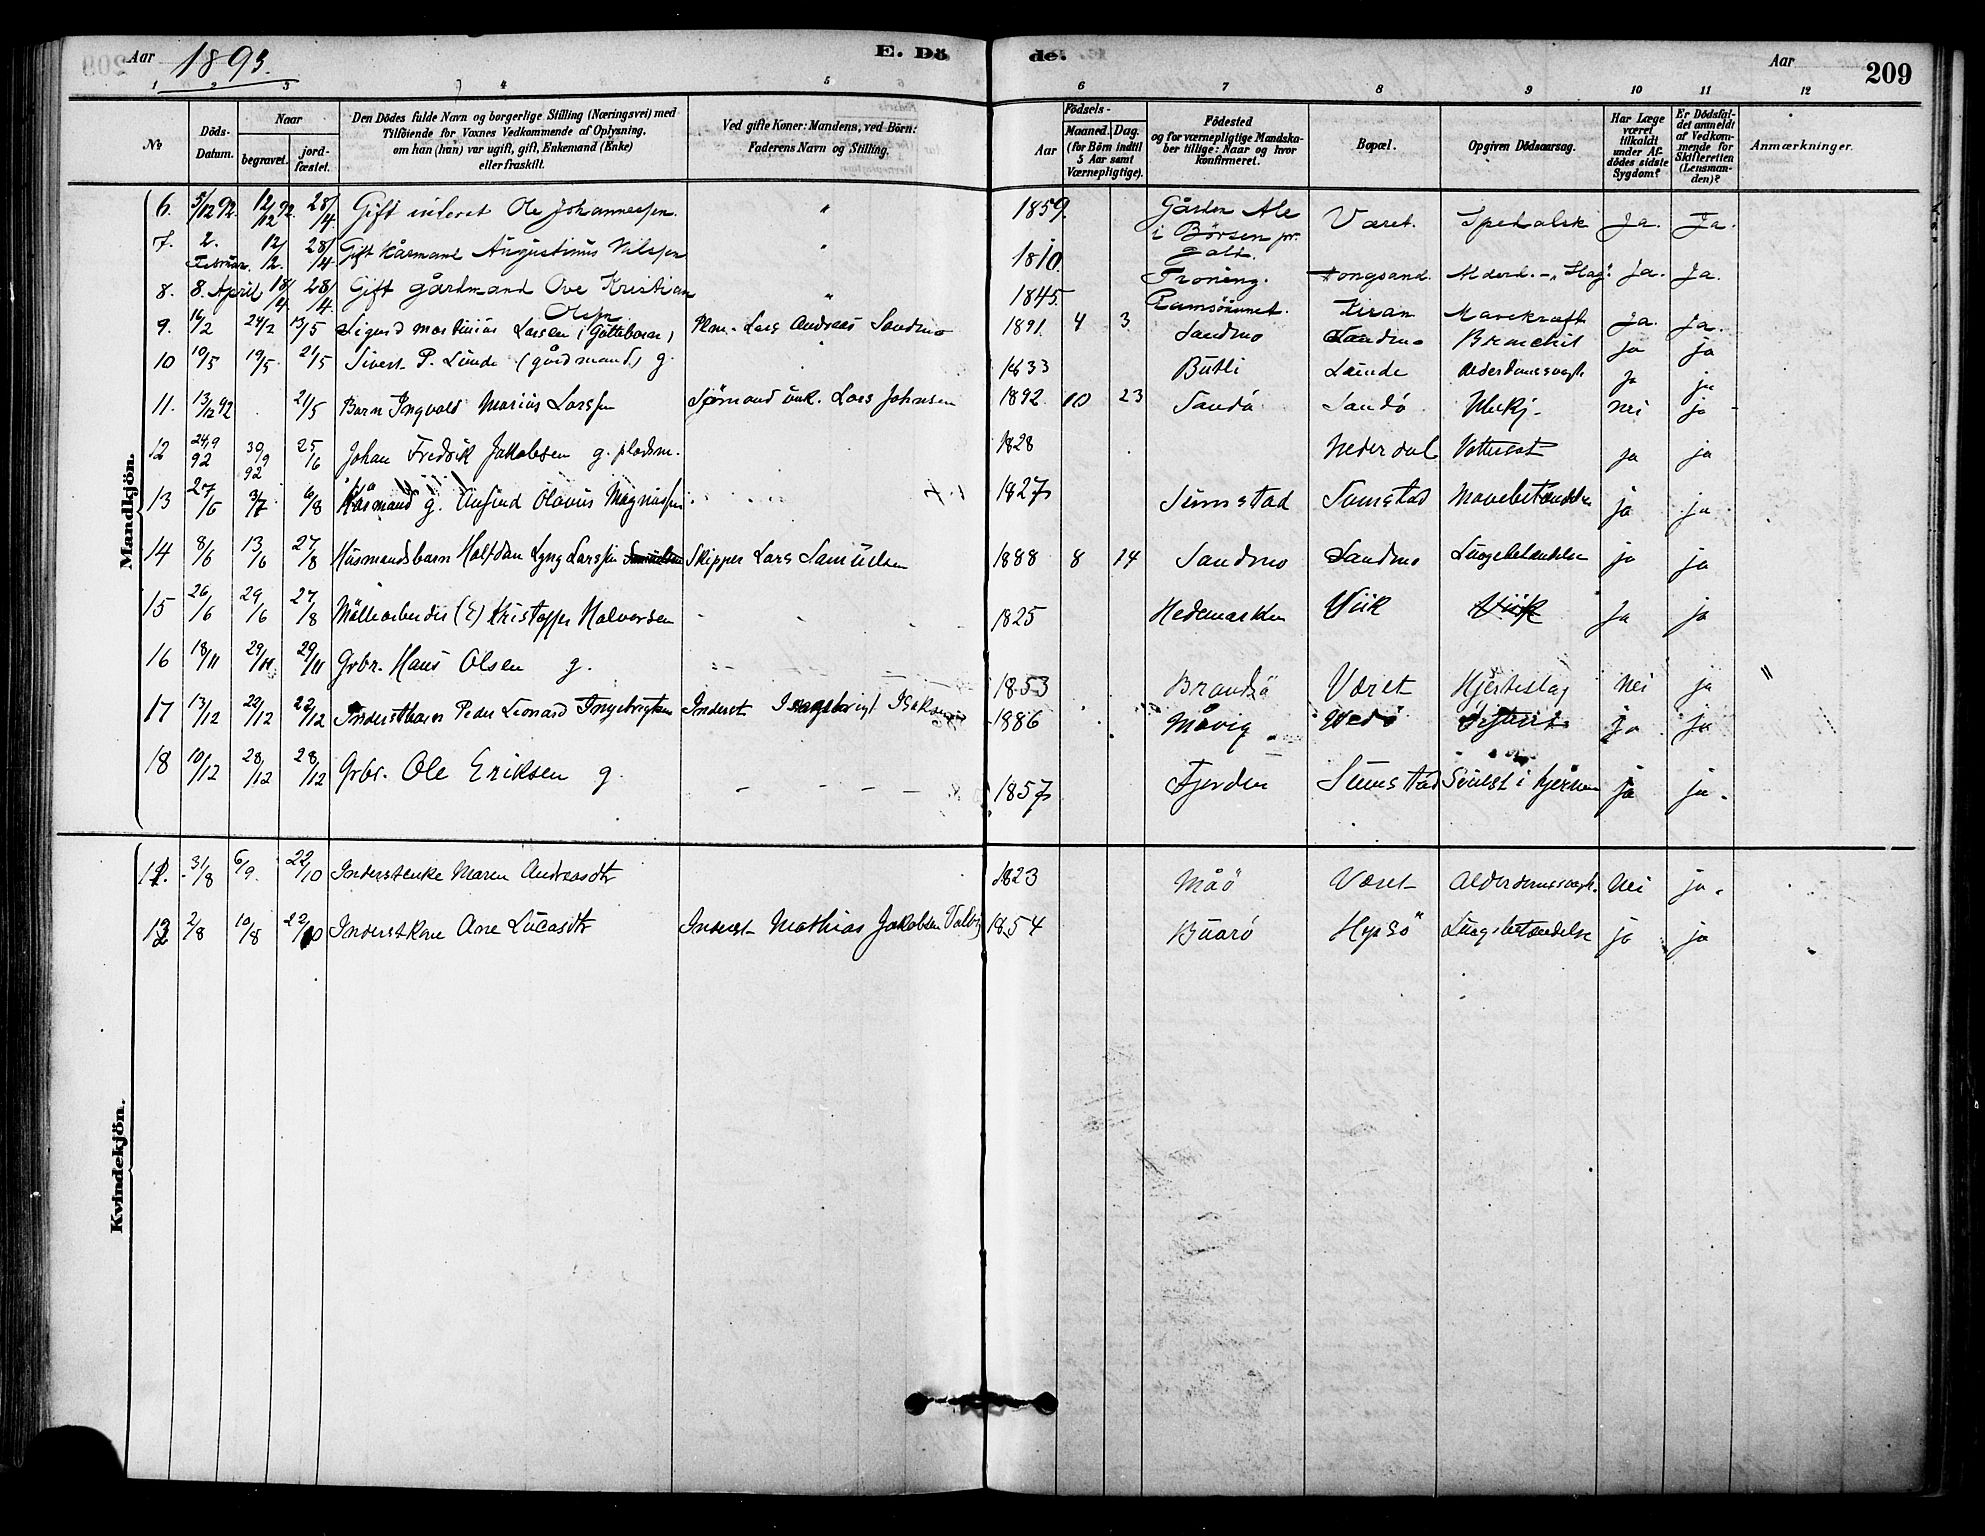 Aar 1893.
E. Döde.
Aar
209
1 2 3 4 5 6 7 8 9 10 11 12
No
Döds-Datum.
Naar
begravet.
jord-fæstet.
Den Dödes fulde Navn og borgerlige Stilling (Næringsvei) med
Tilföiende for Voxnes Vedkommende af Oplysning,
om han (hun) var ugift, gift, Enkemand (Enke)
eller fraskilt.
Ved gifte Koner: Mandens, ved Börn:
Faderens Navn og Stilling.
Födsels-
Aar
Maaned. Dag.
(for Börn indtil
5 Aar samt
Værnepligtige).
Födested
og for værnepligtige Mandska-
ber tillige: Naar og hvor
konfirmeret.
Bopæl.
Opgiven Dödsaarsag.
Har Læge
været
tilkaldt
under Af-
dödes sidste
Sygdom?
Er Dödsfal-
det anmeldt
af Vedkom-
mende for
Skifteretten
(Lensman-
den)?
Anmærkninger.
Mandkjön.
6. 5/12 92. 12/12 92. 28/4. Gift inderst Ole Johannessen. " 1859. Gården Ale i Börsen pr. gald. Været. Spedalsk Ja. Ja.
7. 2. Februar. 12/2. 28/4 Gift Kårmand Augustinus Nilssen " 1810. Troning. Kongsand. Alderd. - "Slag". Ja. Ja.
8. 8. April 18/4 28/4. Gift gårdmand Ove Kristian Olsen " 1845. Ramsöunnet. Kiran Mavekræft Ja. Ja.
9. 16/2 24/2 13/5 Sigurd Martinius Larsen Plm. Lars Andreas Sandmo 1891. 4 3 Sandmo Sandmo Bronchit ja ja
10 10/5 19/5 21/5 Sivert P. Lunde (gårdmand) g. 1833 Butli Lunde Alderdomssvagh. ja ja
11. 13/12 92 21/5 Barn Ingvald Marius Larssen Sjømand unk. Lars Johnsen 1892 10 23 Sandö Sandö Ubekj. nei ja
12 24/9 92 30/9 92 25/6 Johan Fredrik Jakobsen g. pladsm. 1828 Nederdal Vattersot ja ja
13 27/6 3/7 6/8 Kårmand g. Anfind Olavus Magnussen 1827 Sumstad Sumstad Mavebetændelse ja ja
14 8/6 13/6 27/8 Husmandsbarn Halfdan Lyng Larssen Skipper Lars Samuelsen 1888 8 14 Sandmo Sandmo Lungebetændelse ja ja
15 26/6 29/6 27/8 Möllearbeider (E) Kristoffer Halvorsen 1825 Hedemarken Viik Viik ja ja
16 18/11 29/11 29/11 Grbr. Hans Olsen g. 1853 Brandsö Været Hjerteslag Nei ja "
17 13/12 22/12 22/12 Inderstbarn Peder Leonard Ingebrigtsen Inderst Ingebrigt Isaksen 1886 Måvig Vedö ja ja
18 10/12 28/12 28/12 Grbr. Ole Eriksen g. 1857 Fjorden Sumstad Svulst i hjernen ja ja.
Kvindekjön.
11. 31/8 6/9. 22/10 Inderstenke Maren Andreasdtr 1823 Måö Været Alderdomssvagh. Nei ja.
12 2/8 10/8 22/10 Inderstkone Ane Lucasdtr Inderst Mathias Jakobsen 1854 Buarö Hopsö Lungebetændelse ja ja